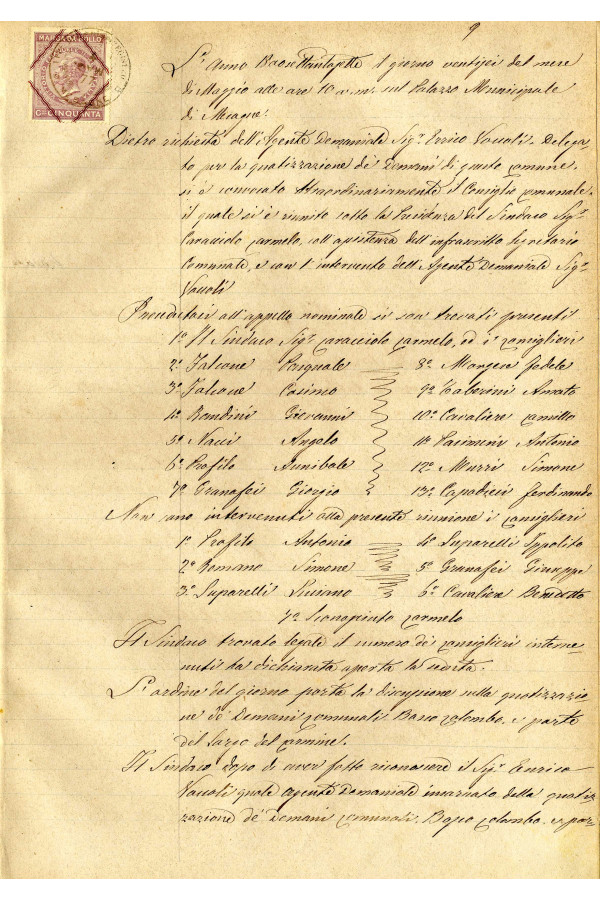 9
MARCA DA BOLLO
CMI CINQUANTA
L'Anno il giorno ventisei del mese
di Maggio alle ore 10 a.m. sul Palazzo Municipale
di Mesagne.
Dietro richiesta dell'Agente Demaniale Sigr. Errico Vaccoli. Delega
to per la quotizzazione de' Demani di questo comune.
si è convocato straordinariamente il Consiglio comunale
il quale si è riunito sotto la Presidenza del Sindaco Sigr.
Caracciolo Carmelo, coll'assistenza dell'infrascritto Segretario
Comunale, e con l'intervento dell'Agente Demaniale Sigr.
Vaccoli
Proceditosi all'appello nominale si son trovati presenti
1º Il Sindaco Sigr. Caracciolo Carmelo, ed i consiglieri
2º Falcone Pasquale 8º Morgen Fedele
3º Falcone Cosimo 9º Taberini Amato
4º Rondini Giovanni 10º Cavaliere Camillo
5º Nacci Angelo 11º Antonio
6º Profilo Annibale 12º Murri Simone
7º Granafei Giorgio 13º Capodieci Ferdinando
Non sono intervenuti alla presente riunione i consiglieri
1º Profilo Antonio 4º Suparelli Ippolito
2º Romano Simone 5º Granafei Giuseppe
3º Suparelli Luciano 6º Cavaliere Benedetto
7º Scarapinto Carmelo
Il Sindaco trovato legale il numero di consiglieri interve-
nuti ha dichiarata aperta la seduta.
L'ordine del giorno porta la discussione sulla quotizzazio-
ne de' Demani comunali Bosco Colombo, e parte
del Parco del Carmine.
Il Sindaco dopo di aver fatto riconoscere il Sigr. Enrico
Vaccoli quale agente Demaniale incaricato della quotiz-
zazione de' Demani comunali. Bosco Colombo. e par-